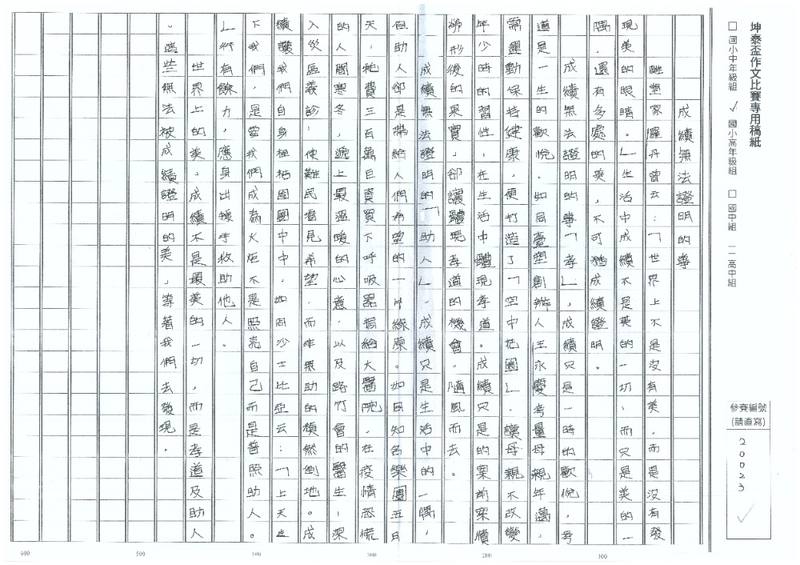 坤泰盃作文比賽專用稿紙
□ 國小中年級組 ✓ 國小高年級組 □ 國中組 高中組
參賽編號
(請直寫)
20023
成績無法證明的尊
雕塑家羅丹曾云：「世界上不是沒有美，而是沒有發
現美的眼睛。」生活中成績不是美的一切，而只是美的一
隅，還有多處的美，不可由成績證明。
成績無法證明的尊「孝」，成績只是一時的歡悅，孝
道是一生的歡悅。如同臺塑創辦人王永慶，考量母親年邁，
需運動保持健康，便打造了「空中花園」，讓母親不改變
年少時的習性，在生活中體現孝道。成績只是
後的果實，卻讓體現孝道的機會，隨風而去。
成績無法證明的「助人」，成績只是生活中的一隅，
但助人卻是帶給人們希望的一片綠原。如日知名樂團五月
天，他費三百萬自買下呼吸器捐給大醫院，在疫情恐慌
的人國寒冬，遞上最溫暖的心意，以及路竹會的醫生，深
入災區義診，使難民看見希望，而非無助的橫倒地。成
續讓我們自身，如同沙士比亞云：「上天
下我們，是當我們成為火炬，不是照亮自己，而是普照助人。
」所有餘力，應身出援手救助他人。
世界上的美，成績不是最美的一切，而是孝道及助人
。這些無法被成績證明的美，等著我們去發現。
100
200
300
400
500
600